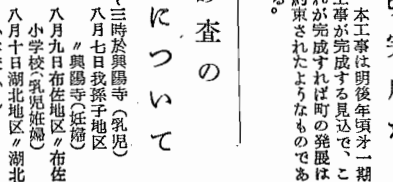 本工事は明後年頃才一期
工事が完成する見込で、こ
れが完成すれば町の発展は
約束されたようなものであ
る。
査の
について
時於興陽寺(乳児)
八月七日我孫子地区
〃興陽寺(妊婦)
八月九日布佐地区〃布佐
小学校(乳児妊婦)
八月十日湖北地区〃湖北